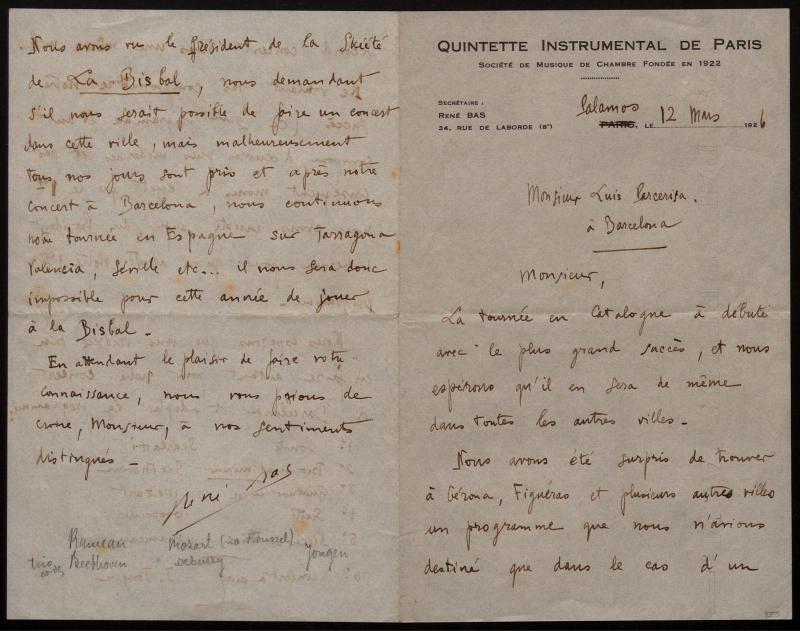 QUINTETTE INSTRUMENTAL DE PARIS
SOCIÉTÉ DE MUSIQUE DE CHAMBRE FONDÉE EN 1922
SECRÉTAIRE :
RENÉ BAS
34, RUE DE LABORDE (8e)
Palamos
PARIS, LE 12 Mars 1926
Monsieur Luis Parcerisa.
à Barcelona
Monsieur,
La tournée en Catalogne à débuté
avec le plus grand succès, et nous
espérons qu'il en sera de même
dans toutes les autres villes.
Nous avons été surpris de trouver
à Gérona, Figuéras et plusieurs autres villes
un programme que nous n'avions
destiné que dans le cas d'un
Nous avons vu le Président de la Société
de La Bisbal, nous demandant
s'il nous serait possible de faire un concert
dans cette ville, mais malheureusement
tous nos jours sont pris et après notre
concert à Barcelona, nous continuons
notre tournée en Espagne sur Tarragona
Valencia, Séville etc... il nous sera donc
impossible pour cette année de jouer
à la Bisbal -
En attendant le plaisir de faire votre
connaissance, nous vous prions de
croire, Monsieur, à nos sentiments
distingués -
René Bas
Rameau Mozart (no Roussel)
trio Beethoven Debussy Jongen